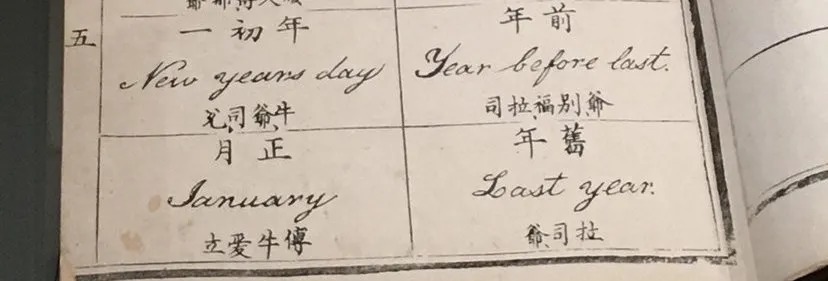 前年
Year before last.
爺别福拉司
舊年
Last year.
拉司爺
年初一
New years day
牛爺司
正月
January
傳牛愛立
五